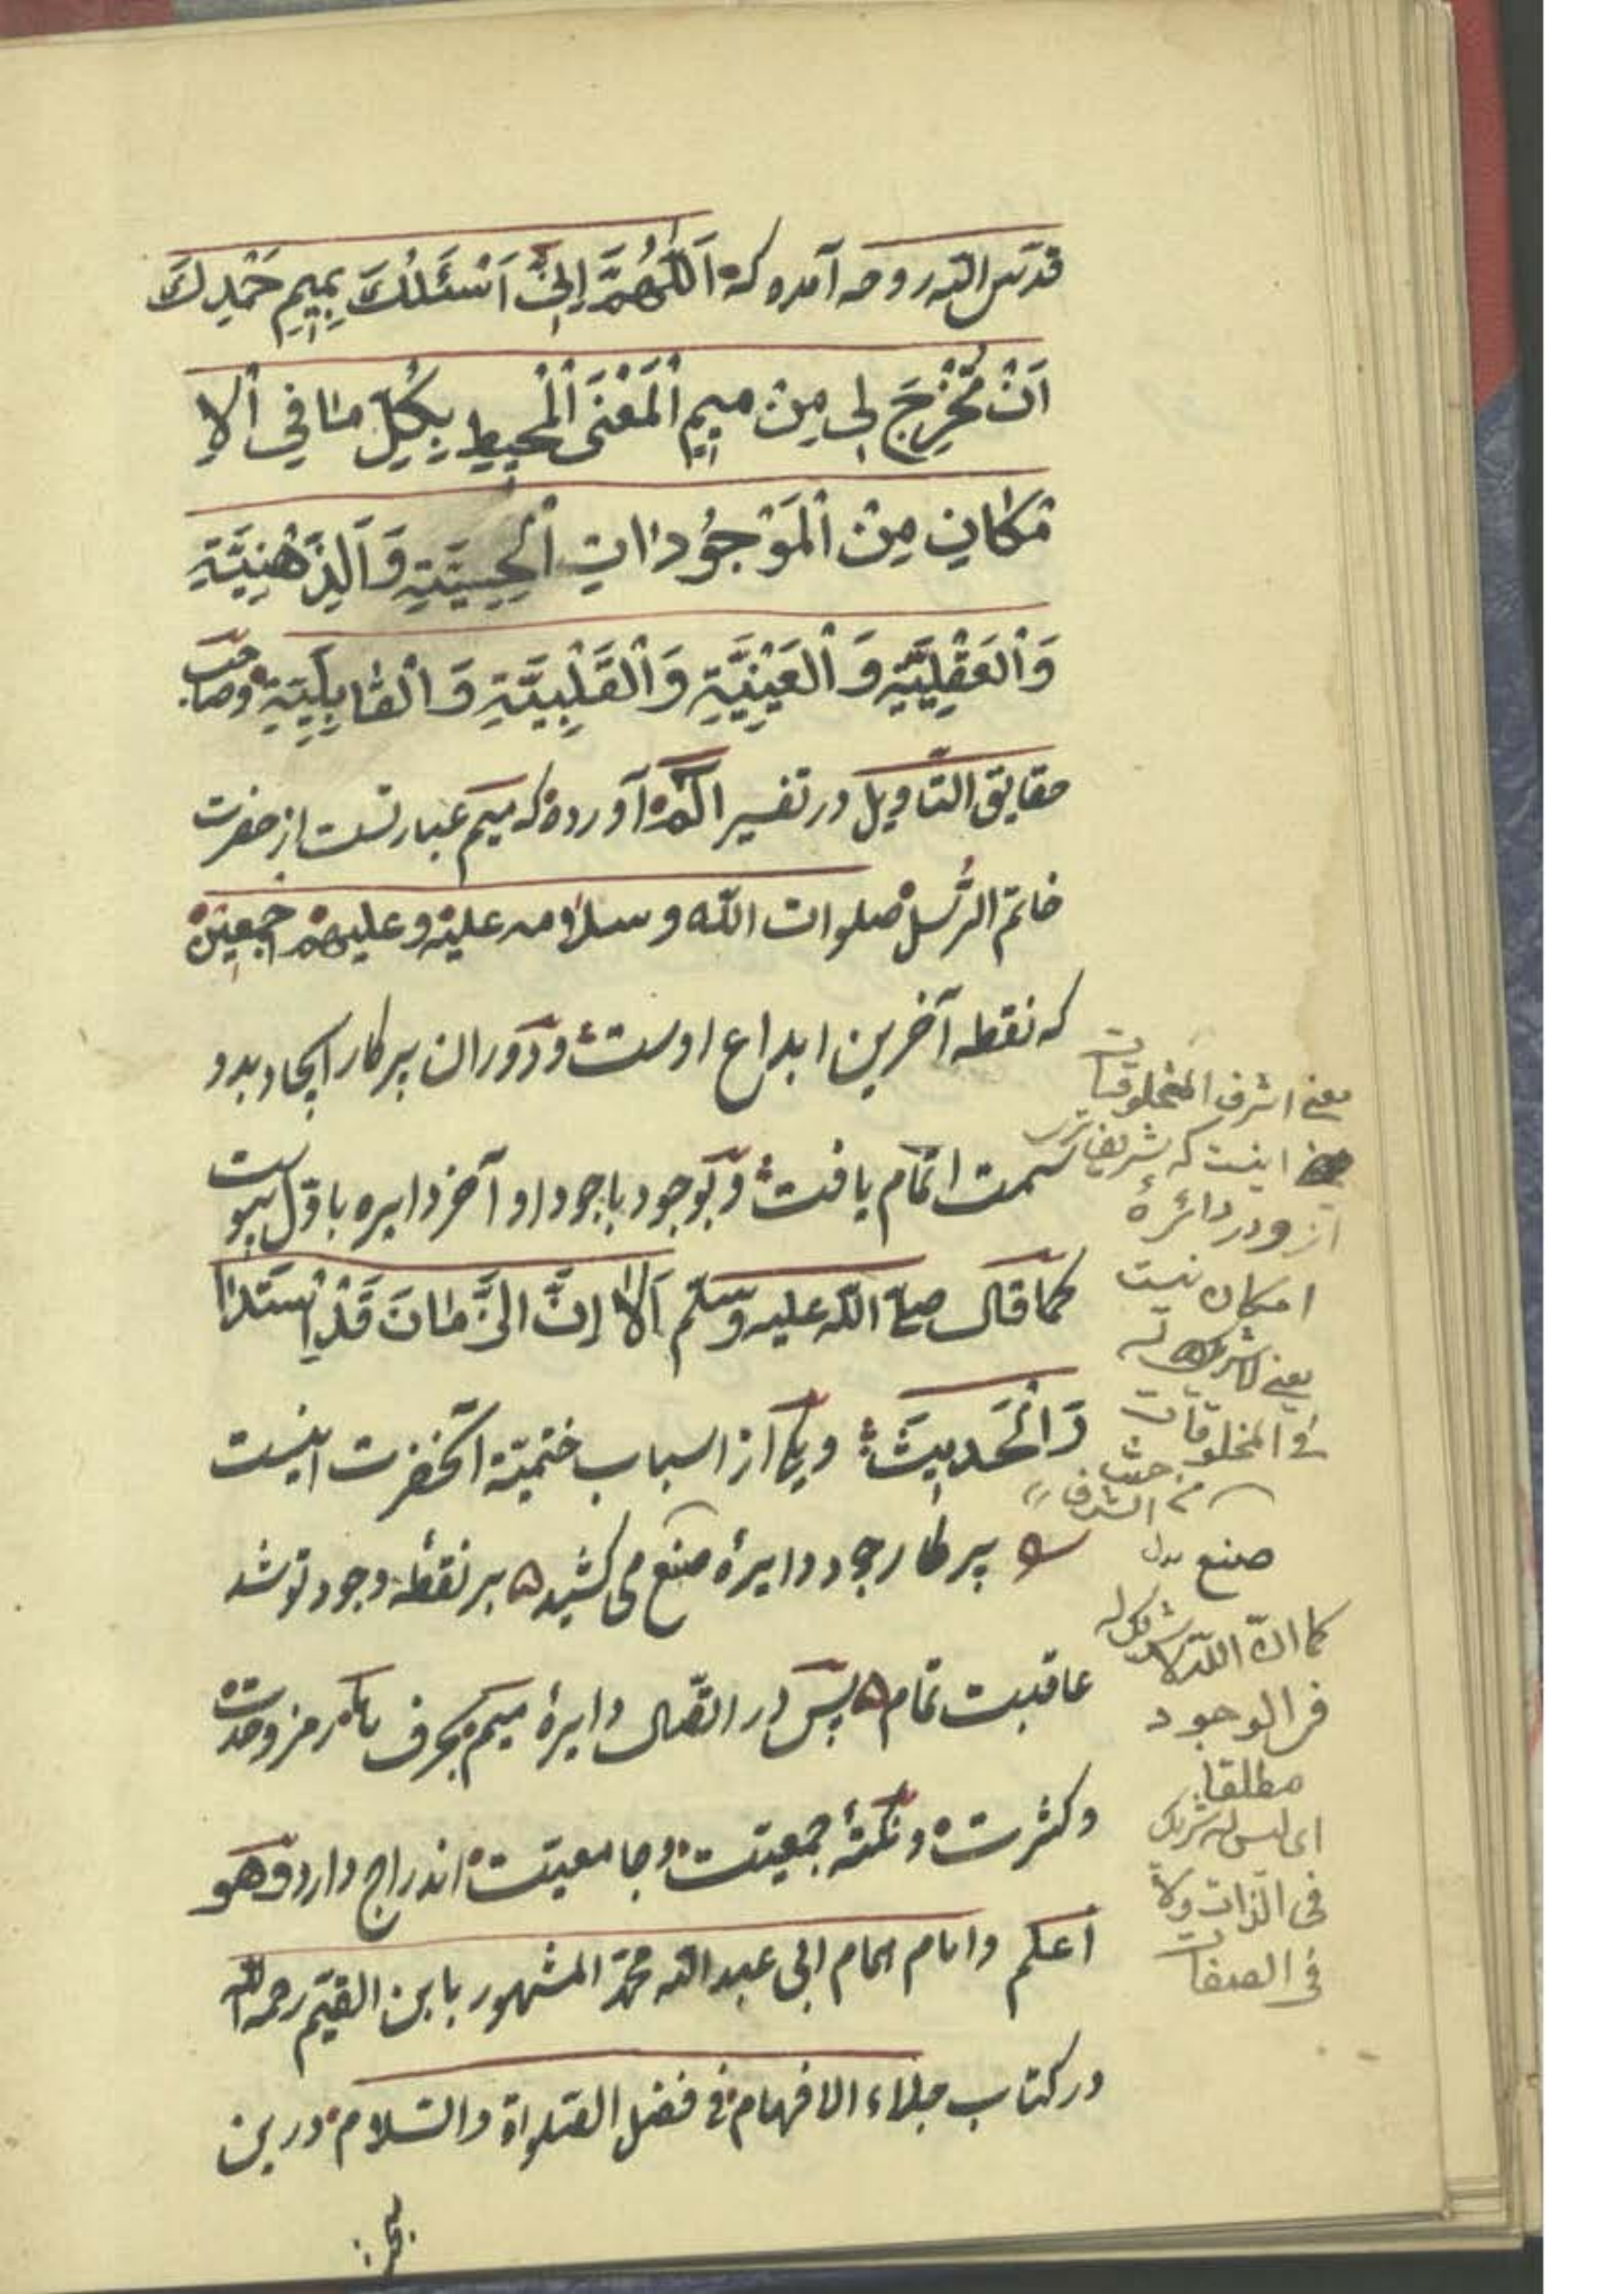 قدّس الله روحه آمده که اَللّٰهُمَّ اِنِّی اَسْئَلُكَ بِمِیمِ حَمْدِكَ
اَنْ تُخْرِجَ لِی مِنْ مِیمِ اَلْمَعْنَی اَلْمُحِیطِ بِكُلِّ مٰا فِی اْلاِ
مْكٰانِ مِنْ اَلْمَوْجُودٰاتِ اَلْحِسِّیَّةِ وَ اَلذِّهْنِیَّةِ
وَاْلعَقْلِیَّةِ وَ اْلعَیْنِیَّةِ وَاْلقَلْبِیَّةِ وَ اْلقٰابِلِیَّةِ وصاحب
حقایق التّاویل در تفسیر الم آورده که میم عبارتست از حضرت
خاتم الرُّسل صلوات اللّه و سلامه علیه و علیهم اجمعین
که نقطه آخرین ابداع اوست و دَوران پرکار ایجاد بدو
سمت اتمام یافت و بوجود باجود او آخر دایره باوّل پیوست
کما قال صلّی اللّه علیه وسلّم اَلاٰ اِنَّ الزَّمٰانَ قَدْ اِسْتَدٰا
رَ اْلحَدِیثَ و یکی از اسباب ختمیّة آنحضرت اینست
پرکار جود دایرهٔ صنع می کشید بر نقطهٔ وجود تو شد
عاقبت تمام پس در اتّصال دایرهٔ میم بحرف رمز وحدت
و کثرت و نکتهٔ جمعیّت و جامعیّت اندراج دارد وهو
اعلم و امام همام ابی عبد الله محمّد المشهور بابن القیّم رحمه الله
در کتاب جلاء الافهام فی فضل الصّلواة والسّلام درین
معنی اشرف المخلوقات
اینست که شریف تری
ازو در دائرهٔ
امکان نیست
یعنی لا شریك له
فی المخلوقات
من حیث الشرف
صنع بدل
کما انّ اللّه لا شریك له
فی الوجود
مطلقا
ای لیس له شریك
فی الذات ولا
فی الصفات